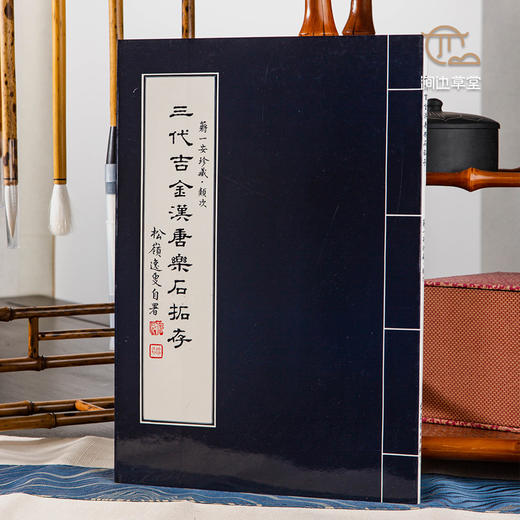 蔣一安珍藏·類次
三代吉金漢唐樂石拓存
松嶺逸叟自署
澗边草堂